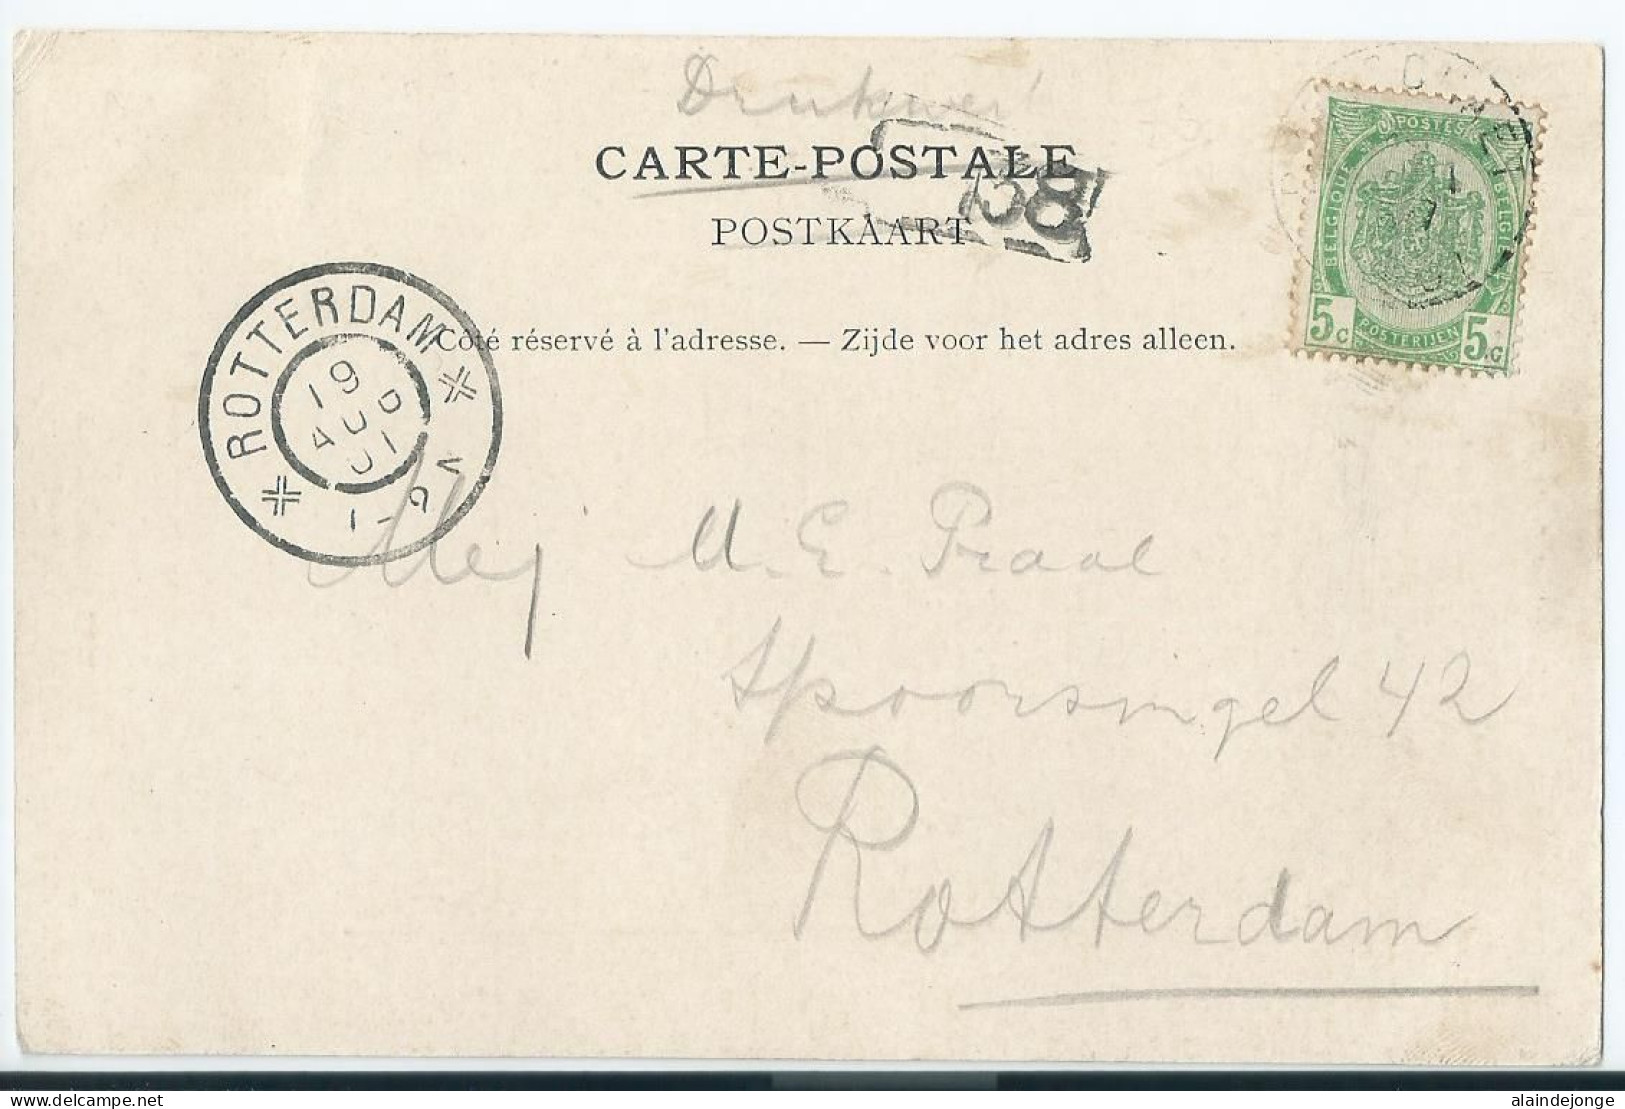 Drukwerk
CARTE-POSTALE
POSTKAART
138
Côté réservé à l'adresse. — Zijde voor het adres alleen.
POSTES
BELGIQUE BELGIË
5c POSTERIJEN 5c
ROTTERDAM
19
AU
01
1-2 N
Mej M. E. Praal
Spoorsingel 42
Rotterdam
delcampe.net
alaindejonge